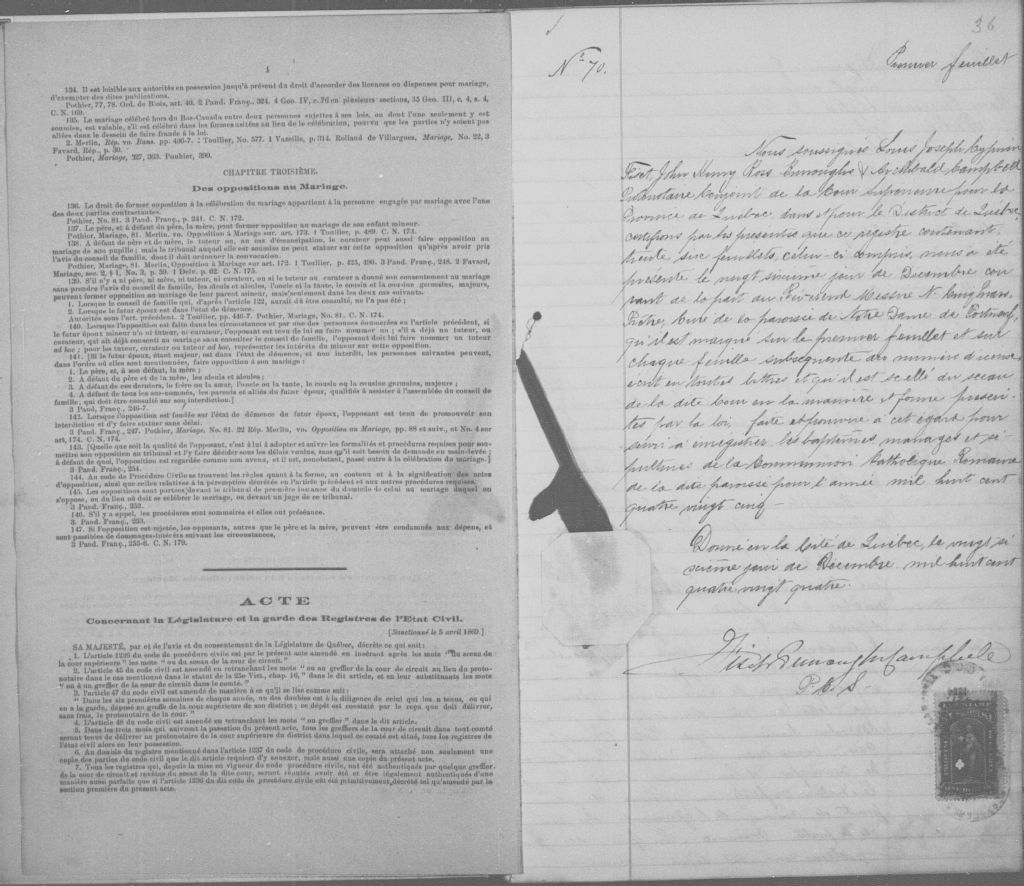 4
134. Il est loisible aux autorités en possession jusqu'à présent du droit d'accorder des licences ou dispenses pour mariage,
d'exempter des dites publications.
Pothier, 77, 78. Ord. de Blois, art. 40. 2 Pand. Franç., 324. 4 Geo. IV, c. 76 en plusieurs sections, 35 Geo. III, c. 4, s. 4,
C. N. 169.
135. Le mariage célébré hors du Bas-Canada entre deux personnes sujettes à ses lois, ou dont l'une seulement y est
soumise, est valable, s'il est célébré dans les formes usitées au lieu de la célébration, pourvu que les parties n'y soient pas
allées dans le dessein de faire fraude à la loi.
2. Merlin, Rép. vo. Bans. pp. 466-7. Toullier, No. 577. 1 Vazeille, p. 314. Rolland de Villargues, Mariage, No. 22, 3
Favard, Rép., p. 30.
Pothier, Mariage, 327, 363. Pouhier, 390.
CHAPITRE TROISIÈME.
Des oppositions au Mariage.
136. Le droit de former opposition à la célébration du mariage appartient à la personne engagée par mariage avec l'une
des deux parties contractantes.
Pothier, No. 81. 3 Pand. Franç., p. 241. C. N. 172.
137. Le père, et à défaut du père, la mère, peut former opposition au mariage de son enfant mineur.
Pothier, Mariage, 81. Merlin, vo. Opposition à Mariage sur art. 173. 1 Toullier, p. 489. C. N. 174.
138. A défaut de père et de mère, le tuteur ou, au cas d'émancipation, le curateur peut aussi faire opposition au
mariage de son pupille; mais le tribunal auquel elle est soumise ne peut statuer sur cette opposition qu'après avoir pris
l'avis du conseil de famille, dont il doit ordonner la convocation.
Pothier, Mariage, 81. Merlin, Opposition à Mariage sur art. 172. 1 Toullier, p. 425, 490. 3 Pand. Franç., 248. 2 Favard,
Mariage, sec. 2, § 1, No. 3, p. 59. 1 Delv. p. 62. C. N. 175.
139. S'il n'y a ni père, ni mère, ni tuteur, ni curateur, ou si le tuteur ou curateur a donné son consentement au mariage
sans prendre l'avis du conseil de famille, les aïeuls et aïeules, l'oncle et la tante, le cousin et la cousine germains, majeurs,
peuvent former opposition au mariage de leur parent mineur, mais seulement dans les deux cas suivants.
1. Lorsque le conseil de famille qui, d'après l'article 122, aurait dû être consulté, ne l'a pas été;
2. Lorsque le futur époux est dans l'état de démence.
Autorités sous l'art. précédent. 2 Toullier, pp. 446-7. Pothier, Mariage, No. 81. C. N. 174.
140. Lorsque l'opposition est faite dans les circonstances et par une des personnes énoncées en l'article précédent, si
le futur époux mineur n'a ni tuteur, ni curateur, l'opposant est tenu de lui en faire nommer un; s'il a déjà un tuteur, ou
curateur, qui ait déjà consenti au mariage sans consulter le conseil de famille, l'opposant doit lui faire nommer un tuteur
ad hoc; pour les tuteur, curateur ou tuteur ad hoc, représenter les intérêts du mineur sur cette opposition.
141. [Si le futur époux, étant majeur, est dans l'état de démence, et non interdit, les personnes suivantes peuvent,
dans l'ordre où elles sont mentionnées, faire opposition à son mariage:
1. Le père, et, à son défaut, la mère;
2. A défaut du père et de la mère, les aïeuls et aïeules;
3. A défaut de ces derniers, le frère ou la sœur, l'oncle ou la tante, le cousin ou la cousine germains, majeurs;
4. A défaut de tous les sus-nommés, les parents et alliés du futur époux, qualifiés à assister à l'assemblée du conseil de
famille, qui doit être consulté sur son interdiction.]
3 Pand. Franç., 246-7.
142. Lorsque l'opposition est fondée sur l'état de démence du futur époux, l'opposant est tenu de promouvoir son
interdiction et d'y faire statuer sans délai.
3 Pand. Franç., 247. Pothier, Mariage, No. 81. 22 Rép. Merlin, vo. Opposition au Mariage, pp. 88 et suiv., et No. 4 sur
art. 174. C. N. 174.
143. [Quelle que soit la qualité de l'opposant, c'est à lui à adopter et suivre les formalités et procédures requises pour sou-
mettre son opposition au tribunal et l'y faire décider sous les délais voulus, sans qu'il soit besoin de demande en main-levée;
à défaut de quoi, l'opposition est regardée comme non avenu, et il est, nonobstant, passé outre à la célébration du mariage.]
3 Pand. Franç., 254.
144. Au code de Procédure Civile se trouvent les règles quant à la forme, au contenu et à la signification des actes
d'opposition, ainsi que celles relatives à la péremption décrétée en l'article précédent et aux autres procédures requises.
145. Les oppositions sont portées devant le tribunal de première instance du domicile de celui au mariage duquel on
s'oppose, ou du lieu où doit se célébrer le mariage, ou devant un juge de ce tribunal.
3 Pand. Franç., 252.
146. S'il y a appel, les procédures sont sommaires et elles ont préséance.
3. Pand. Franç., 253.
147. Si l'opposition est rejetée, les opposants, autres que le père et la mère, peuvent être condamnés aux dépens, et
sont passibles de dommages-intérêts suivant les circonstances.
3 Pand. Franç., 255-6. C. N. 179.
ACTE
Concernant la Législature et la garde des Registres de l'Etat Civil.
[Sanctionné le 5 avril 1869.]
SA MAJESTÉ, par et de l'avis et du consentement de la Législature de Québec, décrète ce qui suit:
1. L'article 1236 du code de procédure civile est par le présent acte amendé en insérant après les mots "du sceau de
la cour supérieure" les mots "ou du sceau de la cour de circuit."
2. L'article 45 du code civil est amendé en retranchant les mots "ou au greffier de la cour de circuit au lieu du proto-
notaire dans le cas mentionné dans le statut de la 25e Vict., chap. 16," dans le dit article, et en leur substituant les mots
"ou à un greffier de la cour de circuit dans le comté."
3. l'article 47 du code civil est amendé de manière à ce qu'il se lise comme suit:
"Dans les six premières semaines de chaque année, un des doubles est à la diligence de celui qui les a tenus, ou qui
en a la garde, déposé au greffe de la cour supérieure de son district; ce dépôt est constaté par le reçu que doit délivrer,
sans frais, le protonotaire de la cour."
4. L'article 48 du code civil est amendé en retranchant les mots "ou greffier" dans le dit article.
5. Dans les trois mois qui suivront la passation du présent acte, tous les greffiers de la cour de circuit dans tout comté
seront tenus de délivrer au protonotaire de la cour supérieure du district dans lequel ce comté est situé, tous les registres de
l'état civil alors en leur possession.
6. Au double du registre mentionné dans l'article 1237 du code de procédure civile, sera attaché non seulement une
copie des parties du code civil que le dit article requiert d'y annexer, mais aussi une copie du présent acte.
7. Tous les registres qui, depuis la mise en vigueur du code de procédure civile, ont été authentiqués par quelque greffier
de la cour de circuit et revêtus du sceau de la dite cour, seront réputés avoir été et être légalement authentiqués d'une
manière aussi parfaite que si l'article 1236 du dit code de procédure civile eût été primitivement décrété tel qu'amendé par la
section première du présent acte.
36
No 70.
Premier feuillet
Nous soussignés Louis Joseph Cyprien
Fiset, John Henry Ross Burroughs & Archibald Campbell
Protonotaire Conjoint de la Cour Supérieure pour la
Province de Québec dans et pour le District de Québec,
certifions par les présentes que ce registre contenant
trente six feuillets, celui-ci compris, nous a été
présenté le vingt sixième jour de Décembre cou
rant de la part du Révérend Messire N.
Prêtre, Curé de la paroisse de Notre Dame de Portneuf
qu'il est marqué sur le premier feuillet et sur
chaque feuille subséquente du numéro d'icelle
écrit en toutes lettres et qu'il est scellé du sceau
de la dite Cour en la manière et forme prescri
tes par la loi, faite et pourvue à cet égard pour
servir à enregistrer les baptêmes, mariages et sé
pultures de la Communion Catholique Romaine
de la dite paroisse pour l'année mil huit cent
quatre vingt cinq -
Donné en la Cité de Québec, le vingt si
xième jour de Décembre mil huit cent
quatre vingt quatre.
Fiset Burroughs Campbell
P C S